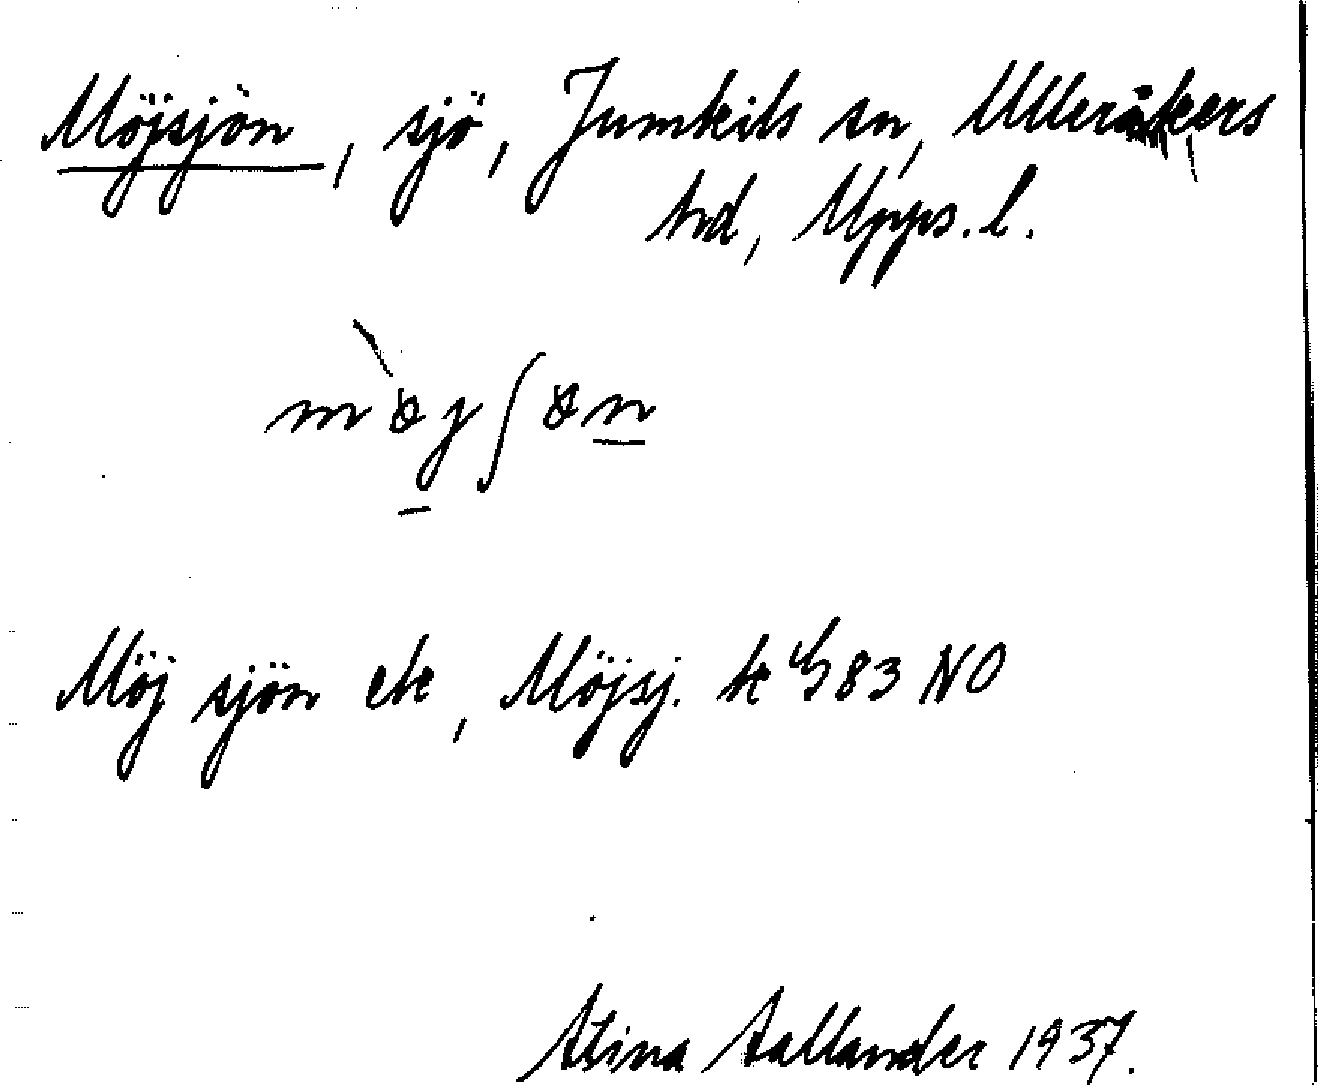 Möjsjön, sjö, Jumkils sn, Ulleråkers
hd, Upps. l.
Möj sjön ek, Möjsj. k 83 NO
Stina Hallander 1937.